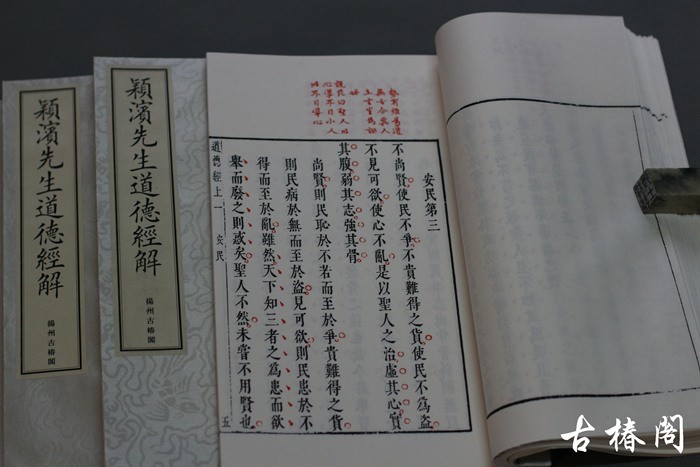 穎濱先生道德經解
揚州古椿閣
穎濱先生道德經解
揚州古椿閣
安民第三
不尚賢使民不爭不貴難得之貨使民不為盜
不見可欲使心不亂是以聖人之治虛其心實
其腹弱其志強其骨
尚賢則民恥於不若而至於爭貴難得之貨
則民病於無而至於盜見可欲則民患於不
得而至於亂雖然天下知三者之為患而欲
舉而廢之則惑矣聖人不然未嘗不用賢也
道德經上一 安民 五
古椿阁